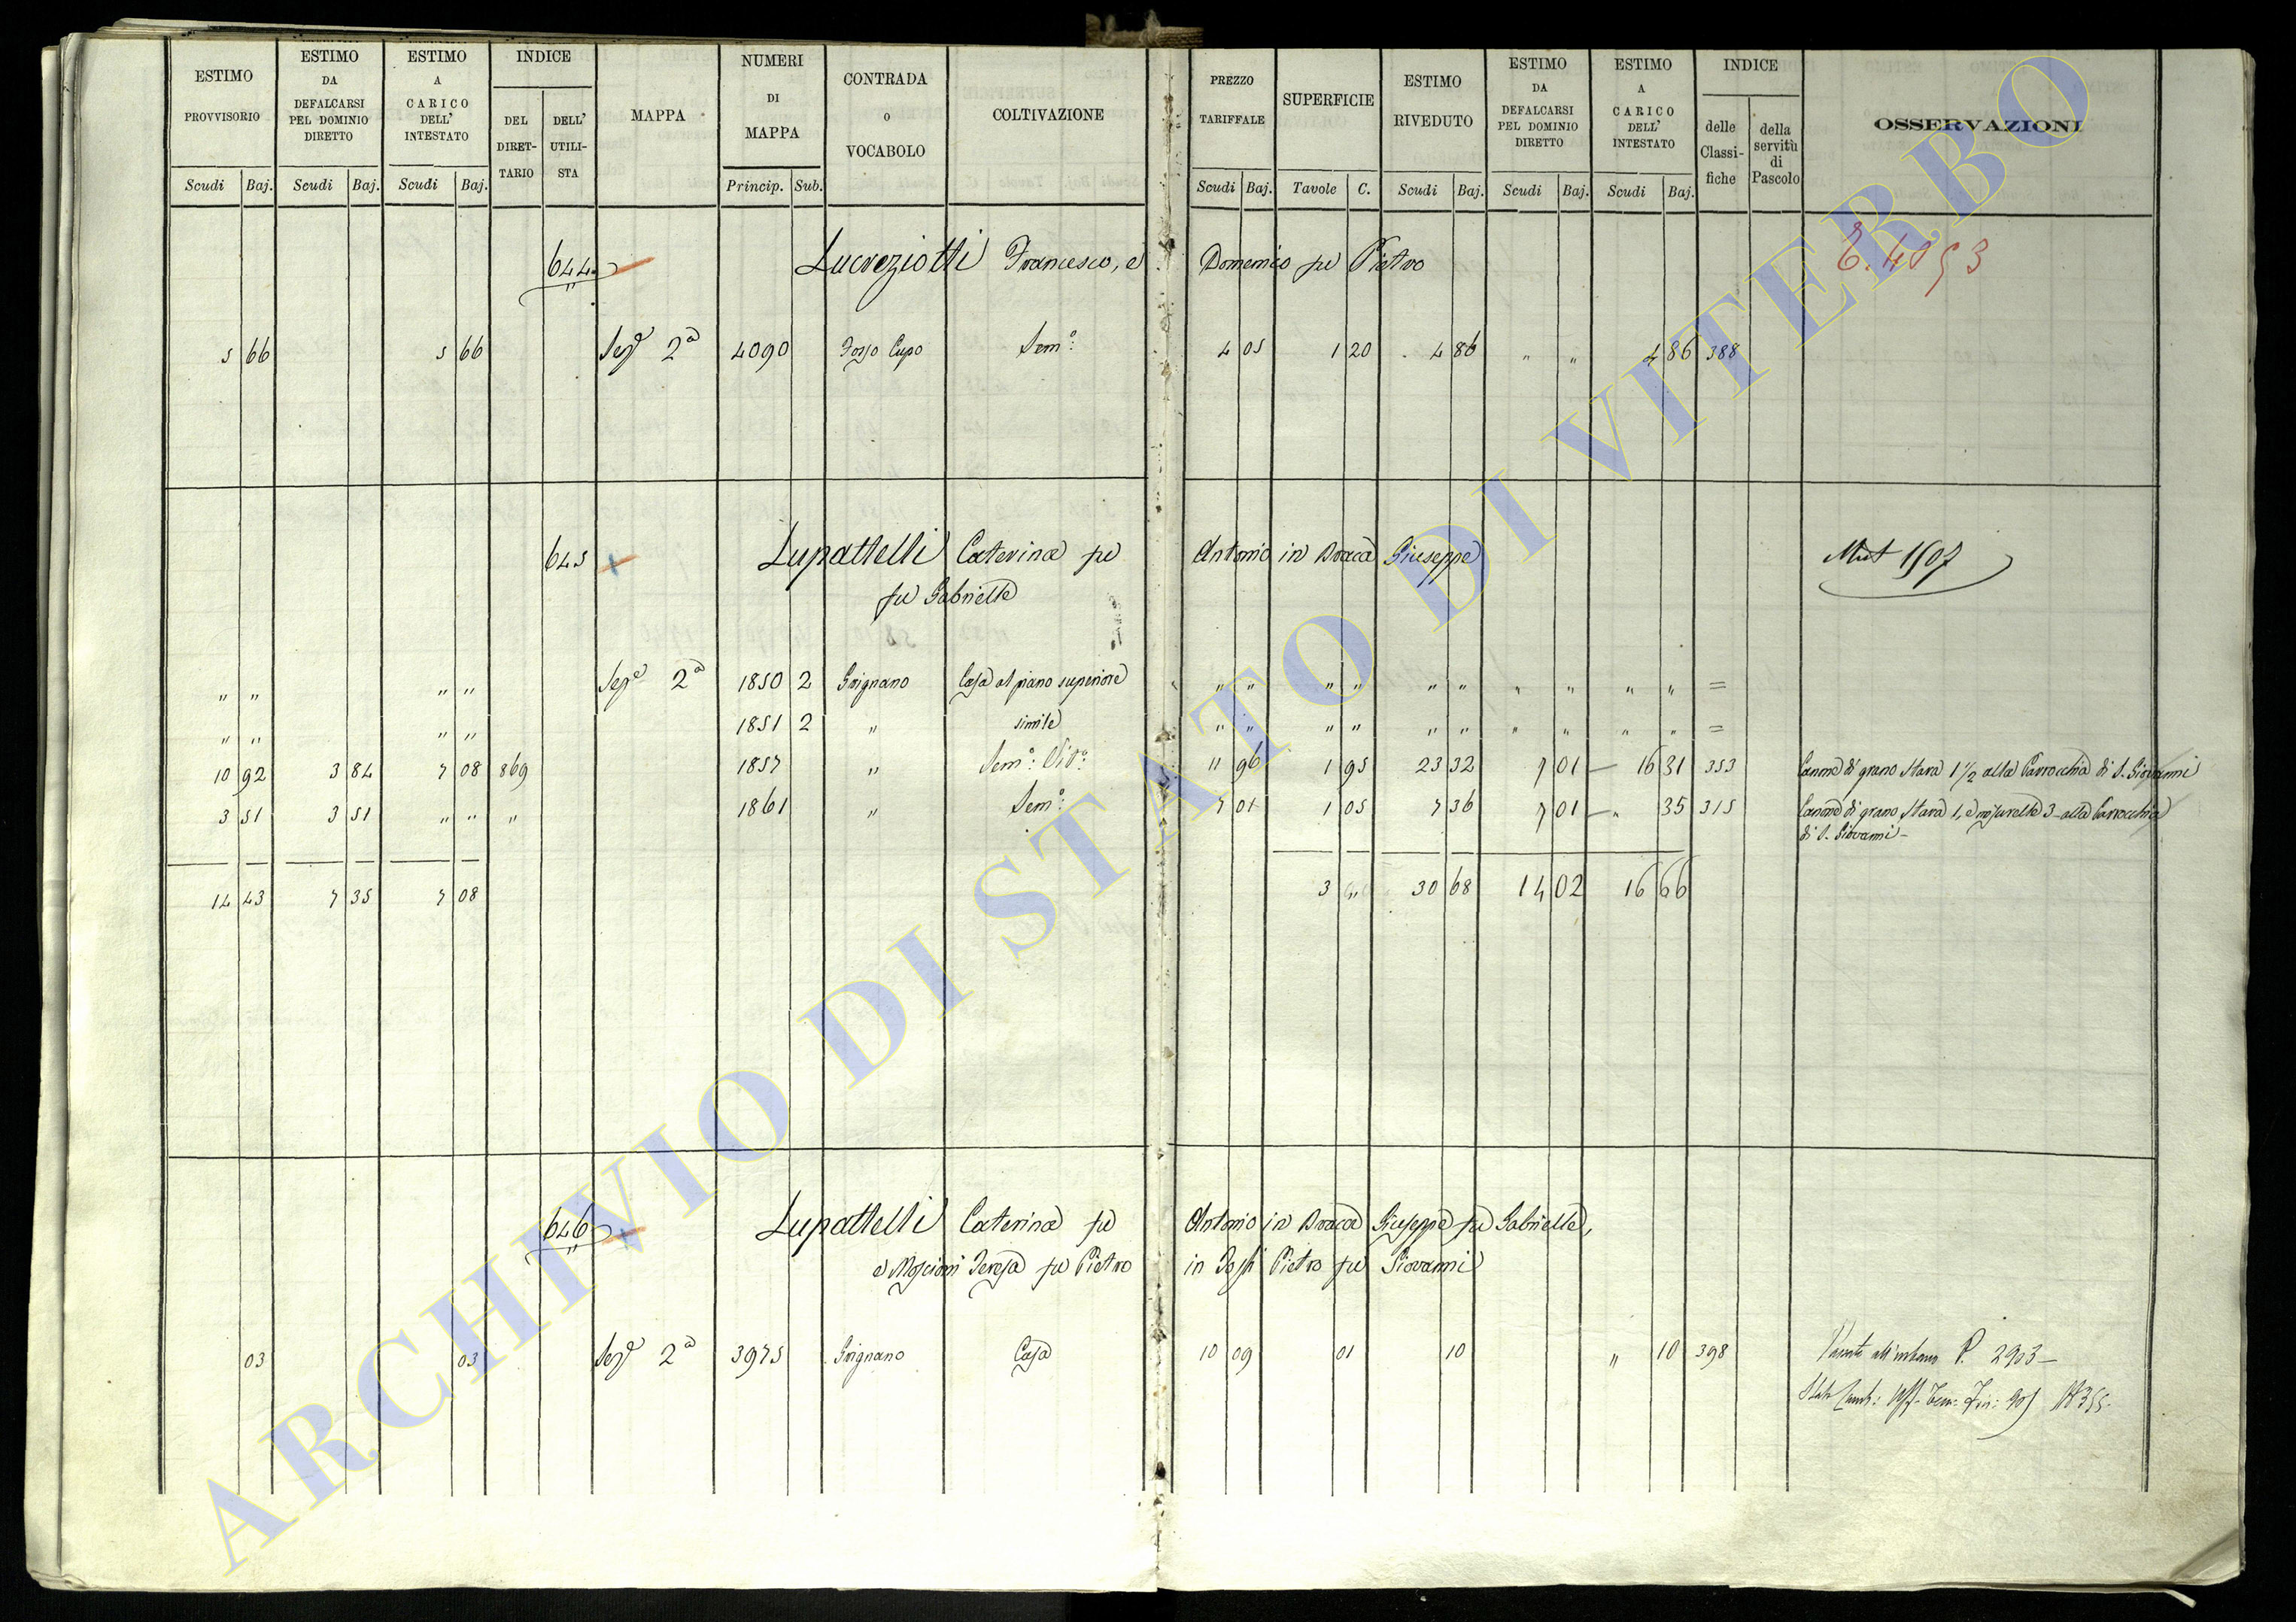 ESTIMO PROVVISORIO Scudi Baj.
ESTIMO DA DEFALCARSI PEL DOMINIO DIRETTO Scudi Baj.
ESTIMO A CARICO DELL' INTESTATO Scudi Baj.
INDICE DEL DIRET- TARIO DELL' UTILI- STA
MAPPA
NUMERI DI MAPPA Princip. Sub.
CONTRADA o VOCABOLO
COLTIVAZIONE
PREZZO TARIFFALE Scudi Baj.
SUPERFICIE Tavole C.
ESTIMO RIVEDUTO Scudi Baj.
ESTIMO DA DEFALCARSI PEL DOMINIO DIRETTO Scudi Baj.
ESTIMO A CARICO DELL' INTESTATO Scudi Baj.
INDICE delle Classi- fiche della servitù di Pascolo
OSSERVAZIONI
644 Lucreziotti Francesco, e Domenico fu Pietro
5 66 5 66 Sez.e 2a 4090 Fosso Cupo Sem.o 4 05 1 20 4 86 " " 4 86 388
645 Lupattelli Caterina fu Antonio in Braca Giuseppe Mut 1507
fu Gabrielle
" " " " Sez.e 2a 1850 2 Grignano Casa al piano superiore " " " " " " " " " " =
" " " " 1851 2 " simile " " " " " " " " " " =
10 92 3 84 7 08 869 1857 " Sem.o Vit.o 11 96 1 95 23 32 7 01 16 31 353 Canone di grano Stara 1 1/2 alla Parrocchia di S. Giovanni
3 51 3 51 " " " 1861 " Sem.o 7 01 1 05 7 36 7 01 " 35 315 Canone di grano Stara 1, e misurelle 3 alla Parrocchia
di S. Giovanni
14 43 7 35 7 08 3 " 30 68 14 02 16 66
646 Lupattelli Caterina fu Antonio in Braca Giuseppe fu Gabrielle,
e Moscioni Teresa fu Pietro in Fosti Pietro fu Giovanni
03 03 Sez.e 2a 3975 Grignano Casa 10 09 01 10 " 10 398 all'urbano P. 2903
ARCHIVIO DI STATO DI VITERBO